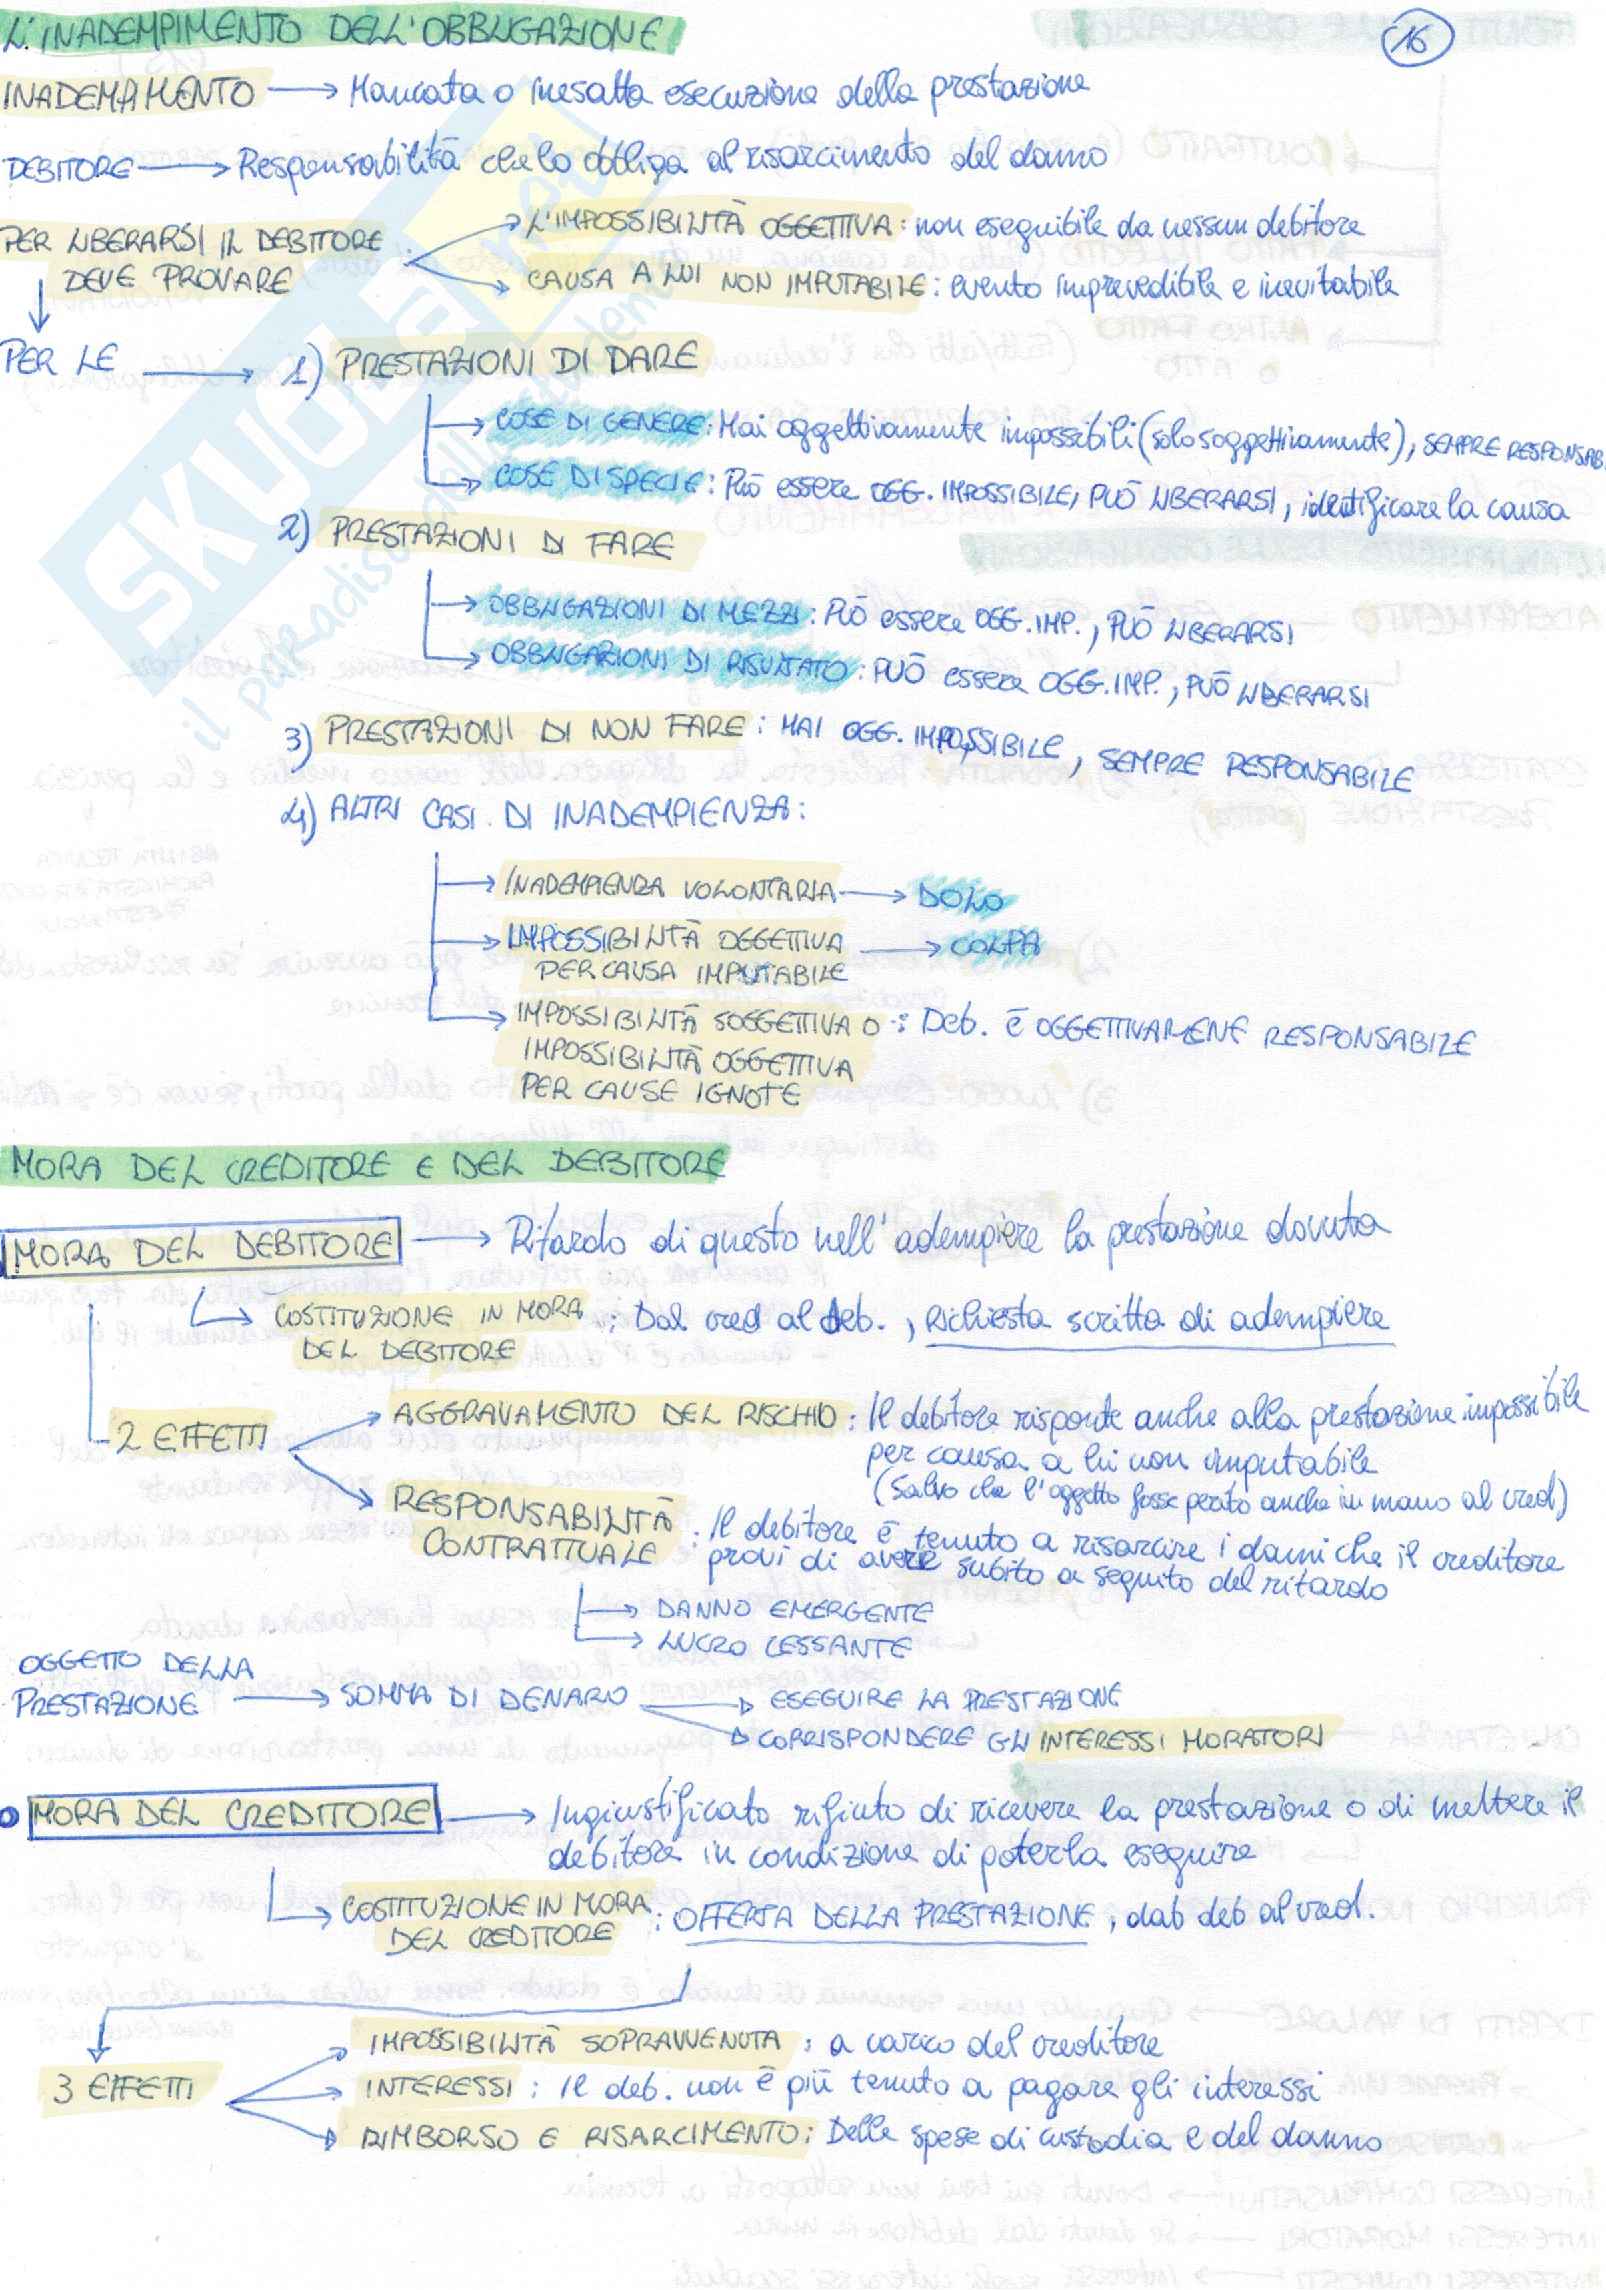 L'INADEMPIMENTO DELL'OBBLIGAZIONE
16
INADEMPIMENTO → Mancata o inesatta esecuzione della prestazione
DEBITORE → Responsabilità che lo obbliga al risarcimento del danno
PER LIBERARSI IL DEBITORE DEVE PROVARE
L'IMPOSSIBILITÀ OGGETTIVA: non eseguibile da nessun debitore
CAUSA A LUI NON IMPUTABILE: evento imprevedibile e inevitabile
PER LE → 1) PRESTAZIONI DI DARE
COSE DI GENERE: Mai oggettivamente impossibili (solo soggettivamente), SEMPRE RESPONSAB
COSE DI SPECIE: Può essere OGG. IMPOSSIBILE, PUÒ LIBERARSI, identificare la causa
2) PRESTAZIONI DI FARE
OBBLIGAZIONI DI MEZZI: PUÒ essere OGG. IMP., PUÒ LIBERARSI
OBBLIGAZIONI DI RISULTATO: PUÒ essere OGG. IMP., PUÒ LIBERARSI
3) PRESTAZIONI DI NON FARE: MAI OGG. IMPOSSIBILE, SEMPRE RESPONSABILE
4) ALTRI CASI DI INADEMPIENZA:
INADEMPIENZA VOLONTARIA → DOLO
IMPOSSIBILITÀ OGGETTIVA → COLPA
PER CAUSA IMPUTABILE
IMPOSSIBILITÀ SOGGETTIVA O : Deb. È OGGETTIVAMENE RESPONSABILE
IMPOSSIBILITÀ OGGETTIVA
PER CAUSE IGNOTE
MORA DEL CREDITORE E DEL DEBITORE
MORA DEL DEBITORE → Ritardo di questo nell'adempiere la prestazione dovuta
COSTITUZIONE IN MORA : Dal cred al deb., richiesta scritta di adempiere
DEL DEBITORE
2 EFFETTI
AGGRAVAMENTO DEL RISCHIO: Il debitore risponde anche alla prestazione impossibile
per causa a lui non imputabile
(Salvo che l'oggetto fosse perito anche in mano al cred)
RESPONSABILITÀ CONTRATTUALE : Il debitore è tenuto a risarcire i danni che il creditore
provi di avere subito a seguito del ritardo
DANNO EMERGENTE
LUCRO CESSANTE
OGGETTO DELLA
PRESTAZIONE → SOMMA DI DENARO → ESEGUIRE LA PRESTAZIONE
CORRISPONDERE GLI INTERESSI MORATORI
MORA DEL CREDITORE → Ingiustificato rifiuto di ricevere la prestazione o di mettere il
debitore in condizione di poterla eseguire
COSTITUZIONE IN MORA : OFFERTA DELLA PRESTAZIONE, dab deb al cred.
DEL CREDITORE
3 EFFETTI
IMPOSSIBILITÀ SOPRAVVENUTA : a carico del creditore
INTERESSI : Il deb. non è più tenuto a pagare gli interessi
RIMBORSO E RISARCIMENTO: Delle spese di custodia e del danno
SKUOLA.net
il paradiso dello studente